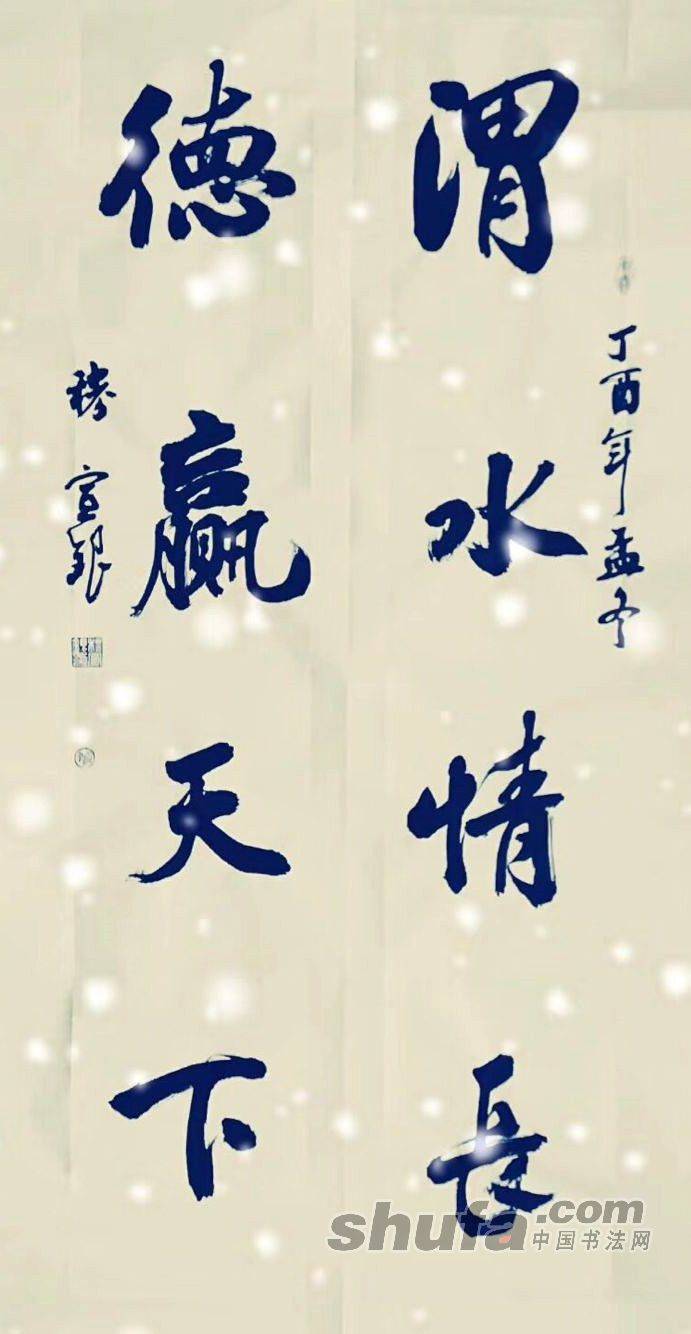 丁酉年孟冬
渭水情長
德贏天下
宣銀
shufa.com
中国书法网